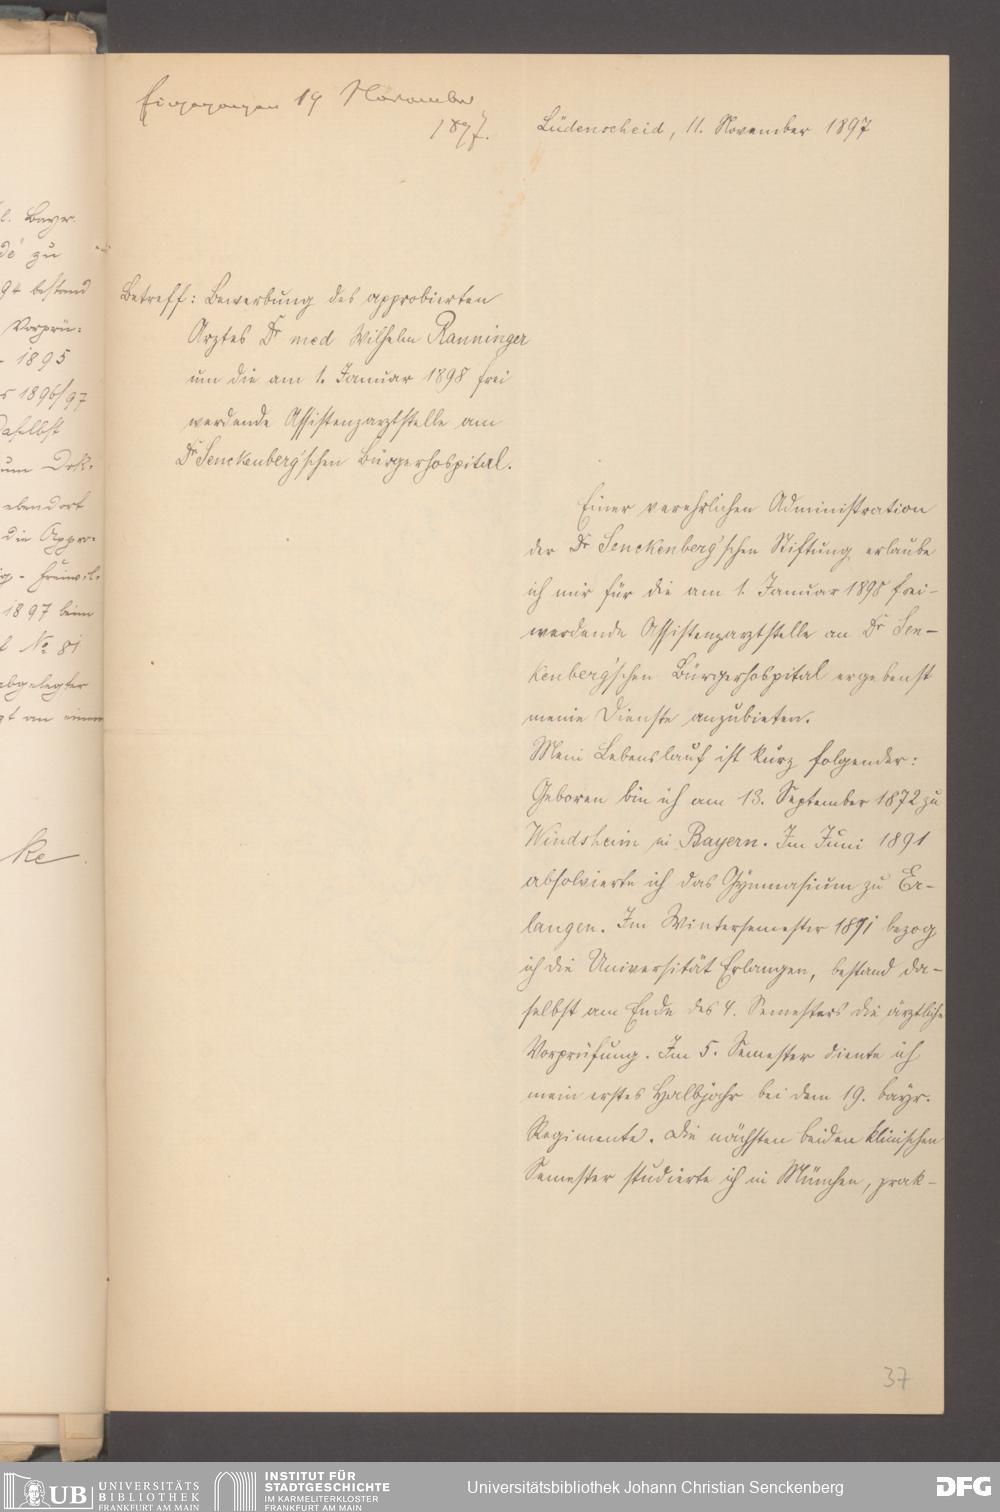 Eingegangen 19 November
1897.
Lüdenscheid, 11. November 1897
Betreff: Bewerbung des approbierten
Arztes Dr med Wilhelm Ranninger
um die am 1. Januar 1898 frei
werdende Assistenzarztstelle am
Dr Senckenberg'schen Bürgerhospital.
Einer verehrlichen Administration
der Dr Senckenberg'schen Stiftung erlaube
ich mir für die am 1. Januar 1898 frei-
werdende Assistenzarztstelle an Dr Sen-
kenberg'schen Bürgerhospital ergebenst
meine Dienste anzubieten.
Mein Lebenslauf ist kurz folgender:
Geboren bin ich am 13. September 1872 zu
Windsheim in Bayern. Im Juni 1891
absolvierte ich das Gymnasium zu Er-
langen. Im Wintersemester 1891 bezog
ich die Universität Erlangen, bestand da-
selbst am Ende des 4. Semesters die ärztliche
Vorprüfung. Im 5. Semester diente ich
mein erstes Halbjahr bei dem 19. bayr.
Regimente. Die nächsten beiden klinischen
Semester studierte ich in München, prak-
37
l. Bayr.
de' zu
94 bestand
Vorprü:
- 1895
s 1896/97
daselbst
zum Dok.
ebendort
die Appro-
ig-Freiwil.
1897 beim
No 81
abgelegter
gt an einem
ke
UB UNIVERSITÄTS
BIBLIOTHEK
FRANKFURT AM MAIN
INSTITUT FÜR
STADTGESCHICHTE
IM KARMELITERKLOSTER
FRANKFURT AM MAIN
Universitätsbibliothek Johann Christian Senckenberg
DFG